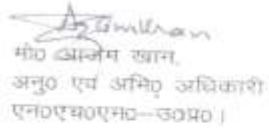 मो० आजम खान,
अनु० एवं अभि० अधिकारी
एन०एच०एम०–उ०प्र०।